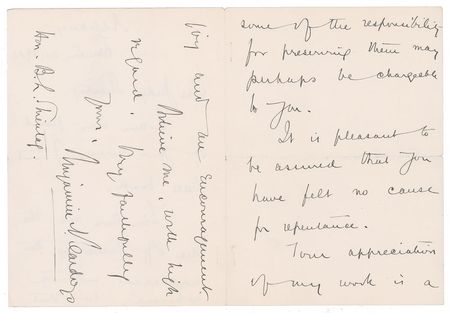 some of the responsibility
for preserving them may
perhaps be chargeable
to you.
It is pleasant to
be assured that you
have felt no cause
for repentance.
Your appreciation
of my work is a
joy and an encouragement.
Believe me, with high
regard,
Very faithfully
yours,
Benjamin N. Cardozo
Hon. B. L.